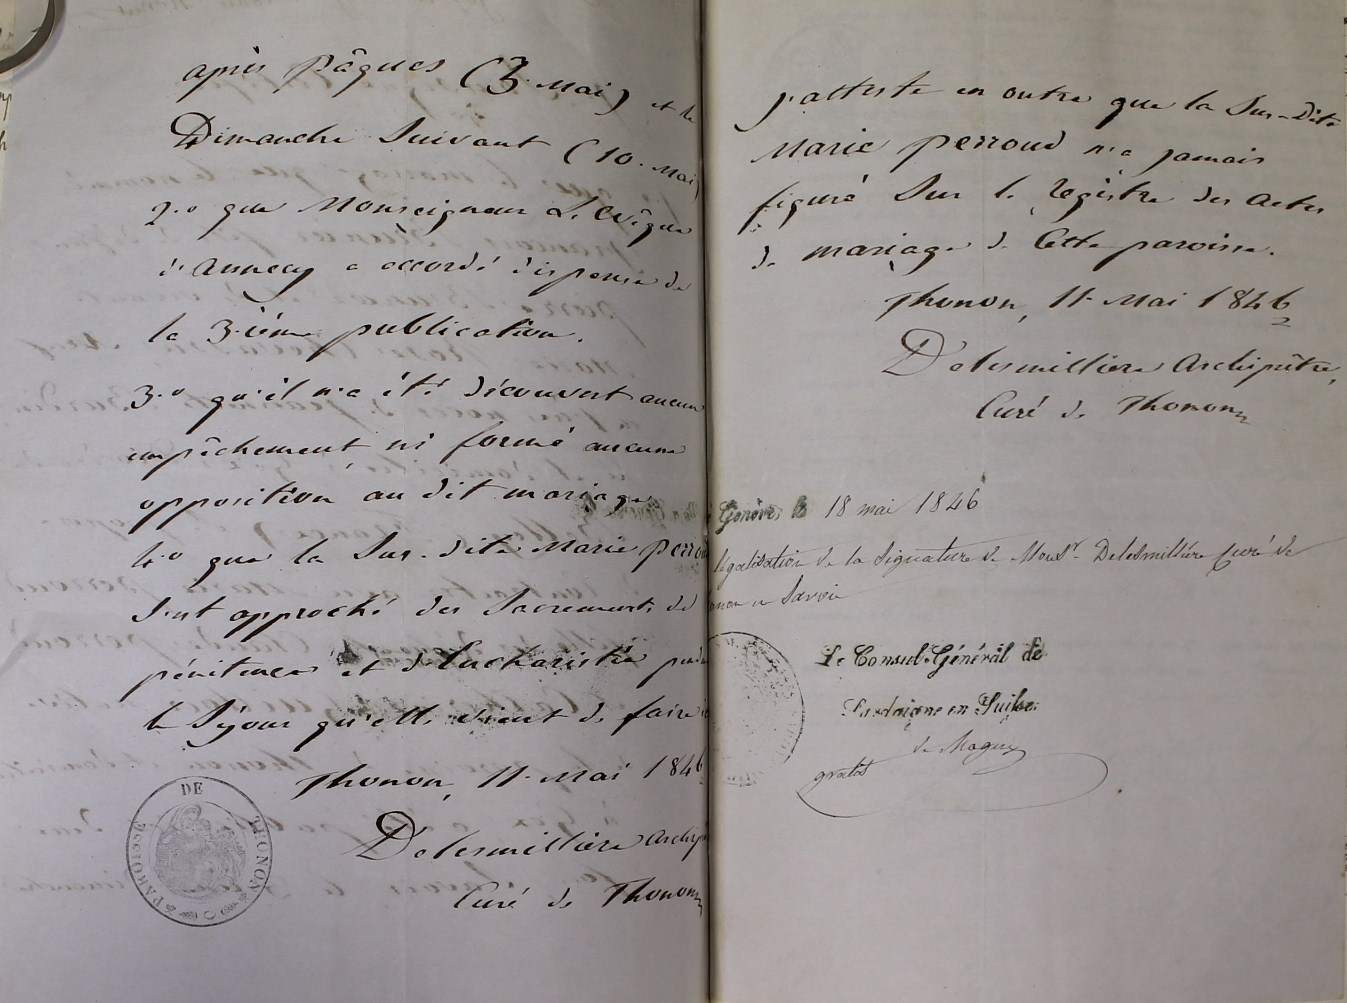 après Pâques (3. Mai) et le
Dimanche Suivant (10. Mai)
2.o que Monseigneur L'Evêque
d'Annecy a accordé dispense de
la 3.ième publication.
3.o qu'il n'a été découvert aucun
empêchement ni formé aucune
opposition au dit mariage
4.o que la Sus-dite Marie perroud
s'est approché des Sacrements de
pénitence et d'Eucharistie
le Séjour qu'elle vient de faire
Thonon, 11. Mai 1846
Delesmilliere Archip
Curé de Thonon
PAROISSE DE THONON
j'atteste en outre que la Sus-Dite
Marie perroud n'a jamais
figuré Sur le registre des actes
de mariage de Cette paroisse.
Thonon, 11. Mai 1846
Delesmilliere Archiprêtre,
Curé de Thonon
Genève, le 18 mai 1846
légalisation de la Signature de Monsr. Delesmillière Curé de
Thonon en Savoie
Le Consul-Général de
Sardaigne en Suisse
de Magny
gratis